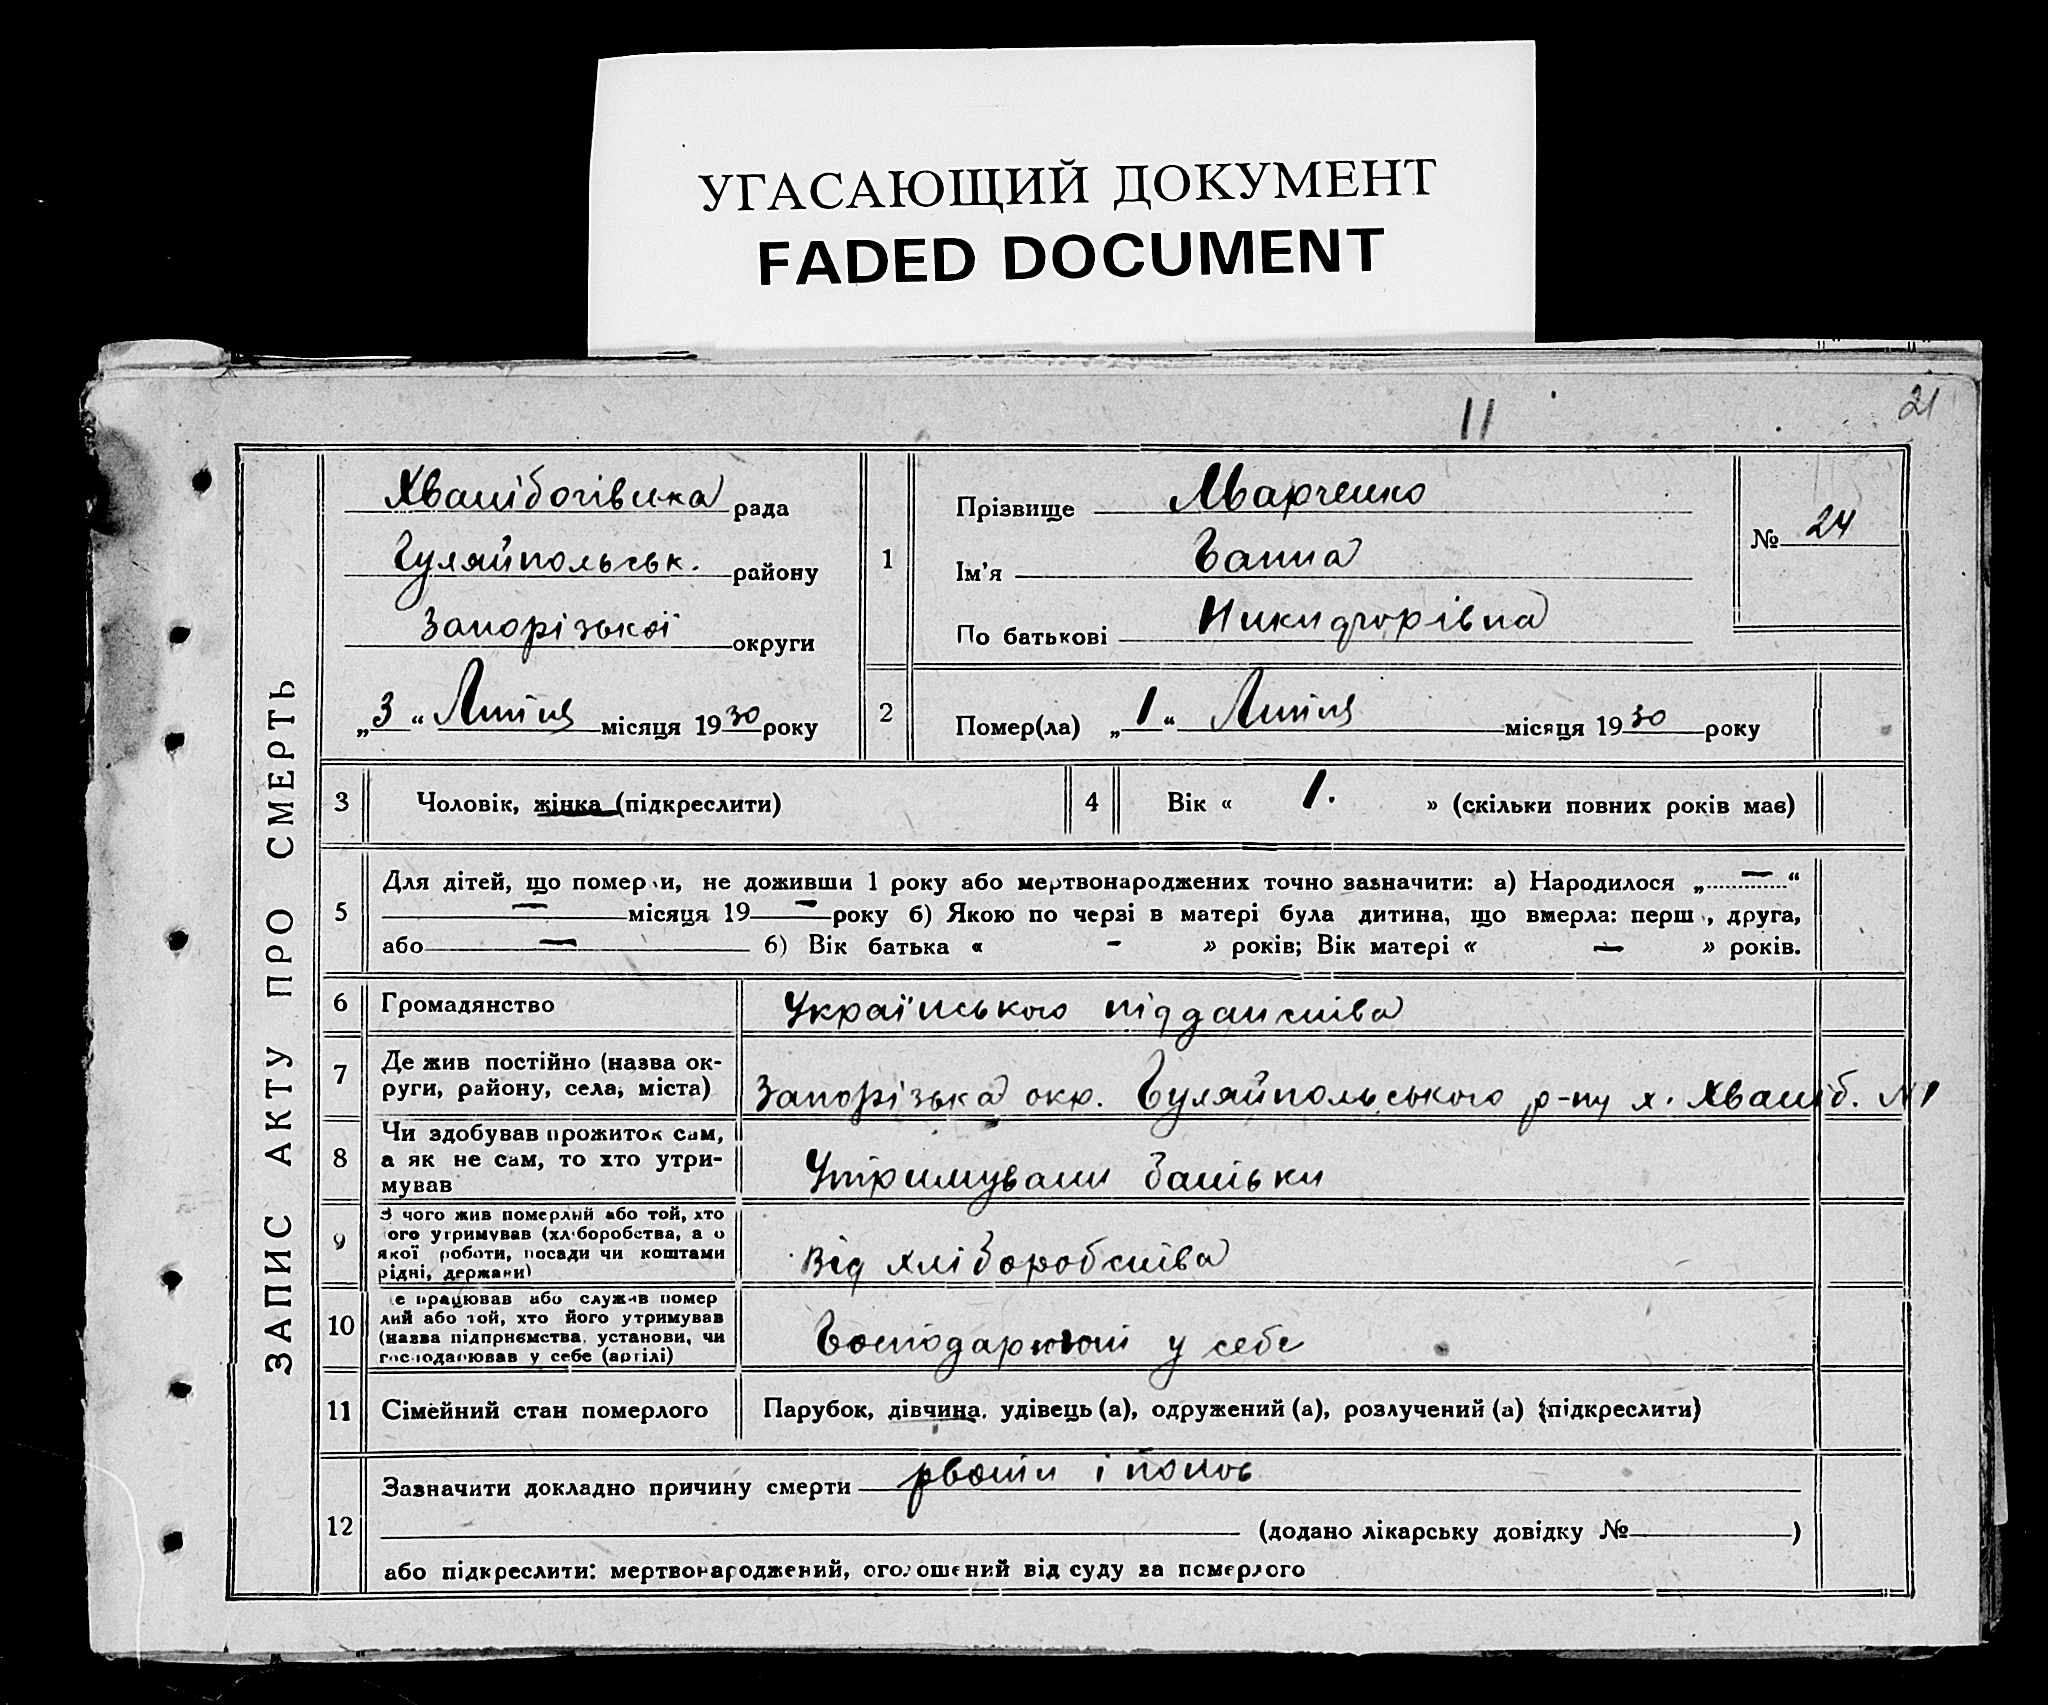 УГАСАЮЩИЙ ДОКУМЕНТ
FADED DOCUMENT
11
21
ЗАПИС АКТУ ПРО СМЕРТЬ
Хвалібогівська рада
Гуляйпольськ. району
Запорізької округи
„3“ Липня місяця 1930 року
1
Прізвище Марченко
Ім'я Ганна
По батькові Никифорівна
№ 24
2
Помер(ла) „1“ Липня місяця 1930 року
3
Чоловік, жінка (підкреслити)
4
Вік « 1. » (скільки повних років має)
5
Для дітей, що померли, не доживши 1 року або мертвонароджених точно зазначити: а) Народилося „—“
— місяця 19— року б) Якою по черзі в матері була дитина, що вмерла: перш , друга,
або — б) Вік батька « - » років; Вік матері « — » років.
6
Громадянство
Українського підданства
7
Де жив постійно (назва ок-
руги, району, села, міста)
Запорізька окр. Гуляйпольського р-ну х. Хваліб. №1
8
Чи здобував прожиток сам,
а як не сам, то хто утри-
мував
Утримували батьки
9
З чого жив померлий або той, хто
ого утримував (хліборобства, а о
якої роботи, посади чи коштами
рідні, держави)
Від хліборобства
10
е працював або служив помер
лий або той, хто його утримував
(назва підприємства, установи, чи
господарював у себе (артілі)
Господарюют у себе
11
Сімейний стан померлого
Парубок, дівчина, удівець (а), одружений (а), розлучений (а) (підкреслити)
12
Зазначити докладно причину смерти рвоти і понос
(додано лікарську довідку № )
або підкреслити: мертвонароджений, оголошений від суду за померлого